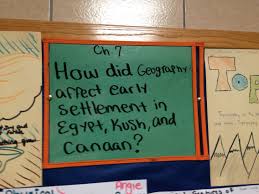 Ch 7
How did Geography
affect early
settlement in
Egypt, Kush, and
Canaan?
TOP
Physical
Angie